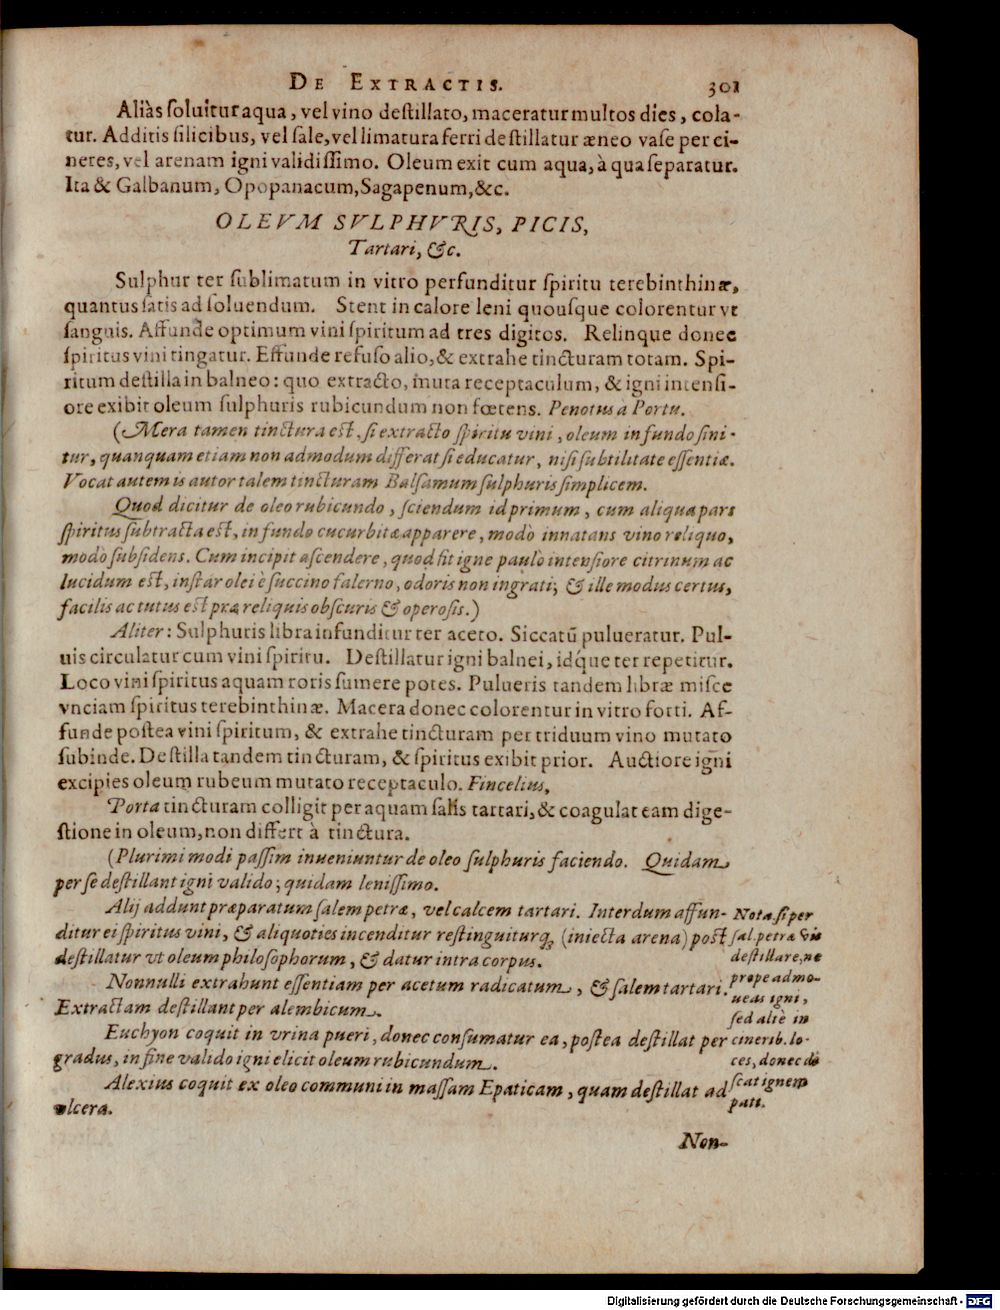 DE EXTRACTIS. 301
Aliàs soluitur aqua, vel vino destillato, maceratur multos dies, cola-
tur. Additis silicibus, vel sale, vel limatura ferri destillatur æneo vase per ci-
neres, vel arenam igni validissimo. Oleum exit cum aqua, à qua separatur.
Ita & Galbanum, Opopanacum, Sagapenum, &c.
OLEVM SVLPHVRIS, PICIS,
Tartari, &c.
Sulphur ter sublimatum in vitro perfunditur spiritu terebinthinæ,
quantus satis ad soluendum. Stent in calore leni quousque colorentur vt
sanguis. Affunde optimum vini spiritum ad tres digitos. Relinque donec
spiritus vini tingatur. Effunde refuso alio, & extrahe tincturam totam. Spi-
ritum destilla in balneo: quo extracto, muta receptaculum, & igni intensi-
ore exibit oleum sulphuris rubicundum non fœtens. Penotus à Portu.
(Mera tamen tinctura est, si extracto spiritu vini, oleum in fundo sini-
tur, quanquam etiam non admodum differat si educatur, nisi subtilitate essentiæ.
Vocat autem is autor talem tincturam Balsamum sulphuris simplicem.
Quod dicitur de oleo rubicundo, sciendum id primum, cum aliqua pars
spiritus subtracta est, in fundo cucurbitæ apparere, modò innatans vino reliquo,
modò subsidens. Cum incipit ascendere, quod fit igne paulò intensiore citrinum ac
lucidum est, instar olei è succino falerno, odoris non ingrati; & ille modus certus,
facilis ac tutus est præ reliquis obscuris & operosis.)
Aliter: Sulphuris libra infunditur ter aceto. Siccatũ pulueratur. Pul-
uis circulatur cum vini spiritu. Destillatur igni balnei, idq́ue ter repetitur.
Loco vini spiritus aquam roris sumere potes. Pulueris tandem libræ misce
vnciam spiritus terebinthinæ. Macera donec colorentur in vitro forti. Af-
funde postea vini spiritum, & extrahe tincturam per triduum vino mutato
subinde. Destilla tandem tincturam, & spiritus exibit prior. Auctiore igni
excipies oleum rubeum mutato receptaculo. Fincelius,
Porta tincturam colligit per aquam salis tartari, & coagulat eam dige-
stione in oleum, non differt à tinctura.
(Plurimi modi passim inueniuntur de oleo sulphuris faciendo. Quidam
per se destillant igni valido; quidam lenissimo.
Alij addunt præparatum salem petræ, vel calcem tartari. Interdum affun-
ditur ei spiritus vini, & aliquoties incenditur restinguiturq́; (iniecta arena) post
destillatur vt oleum philosophorum, & datur intra corpus.
Nonnulli extrahunt essentiam per acetum radicatum, & salem tartari.
Extractam destillant per alembicum.
Euchyon coquit in vrina pueri, donec consumatur ea, postea destillat per
gradus, in fine valido igni elicit oleum rubicundum.
Alexius coquit ex oleo communi in massam Epaticam, quam destillat ad
vlcera.
Nota. si per
sal. petræ vis
destillare, ne
prope admo-
ueas igni,
sed altè in
cinerib. lo-
ces, donec di
scat ignem
pati.
Non-
Digitalisierung gefördert durch die Deutsche Forschungsgemeinschaft - DFG